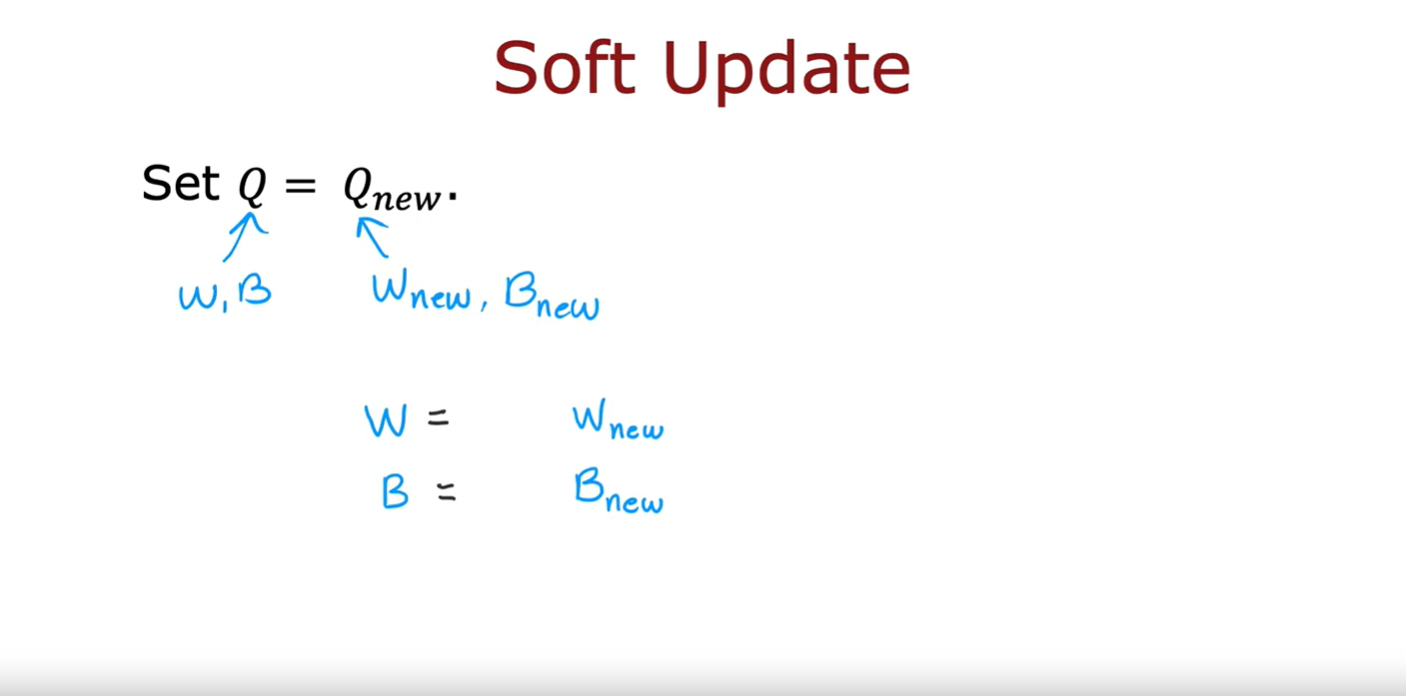 Soft Update
Set Q = Q_new.
W, B W_new, B_new
W = W_new
B = B_new